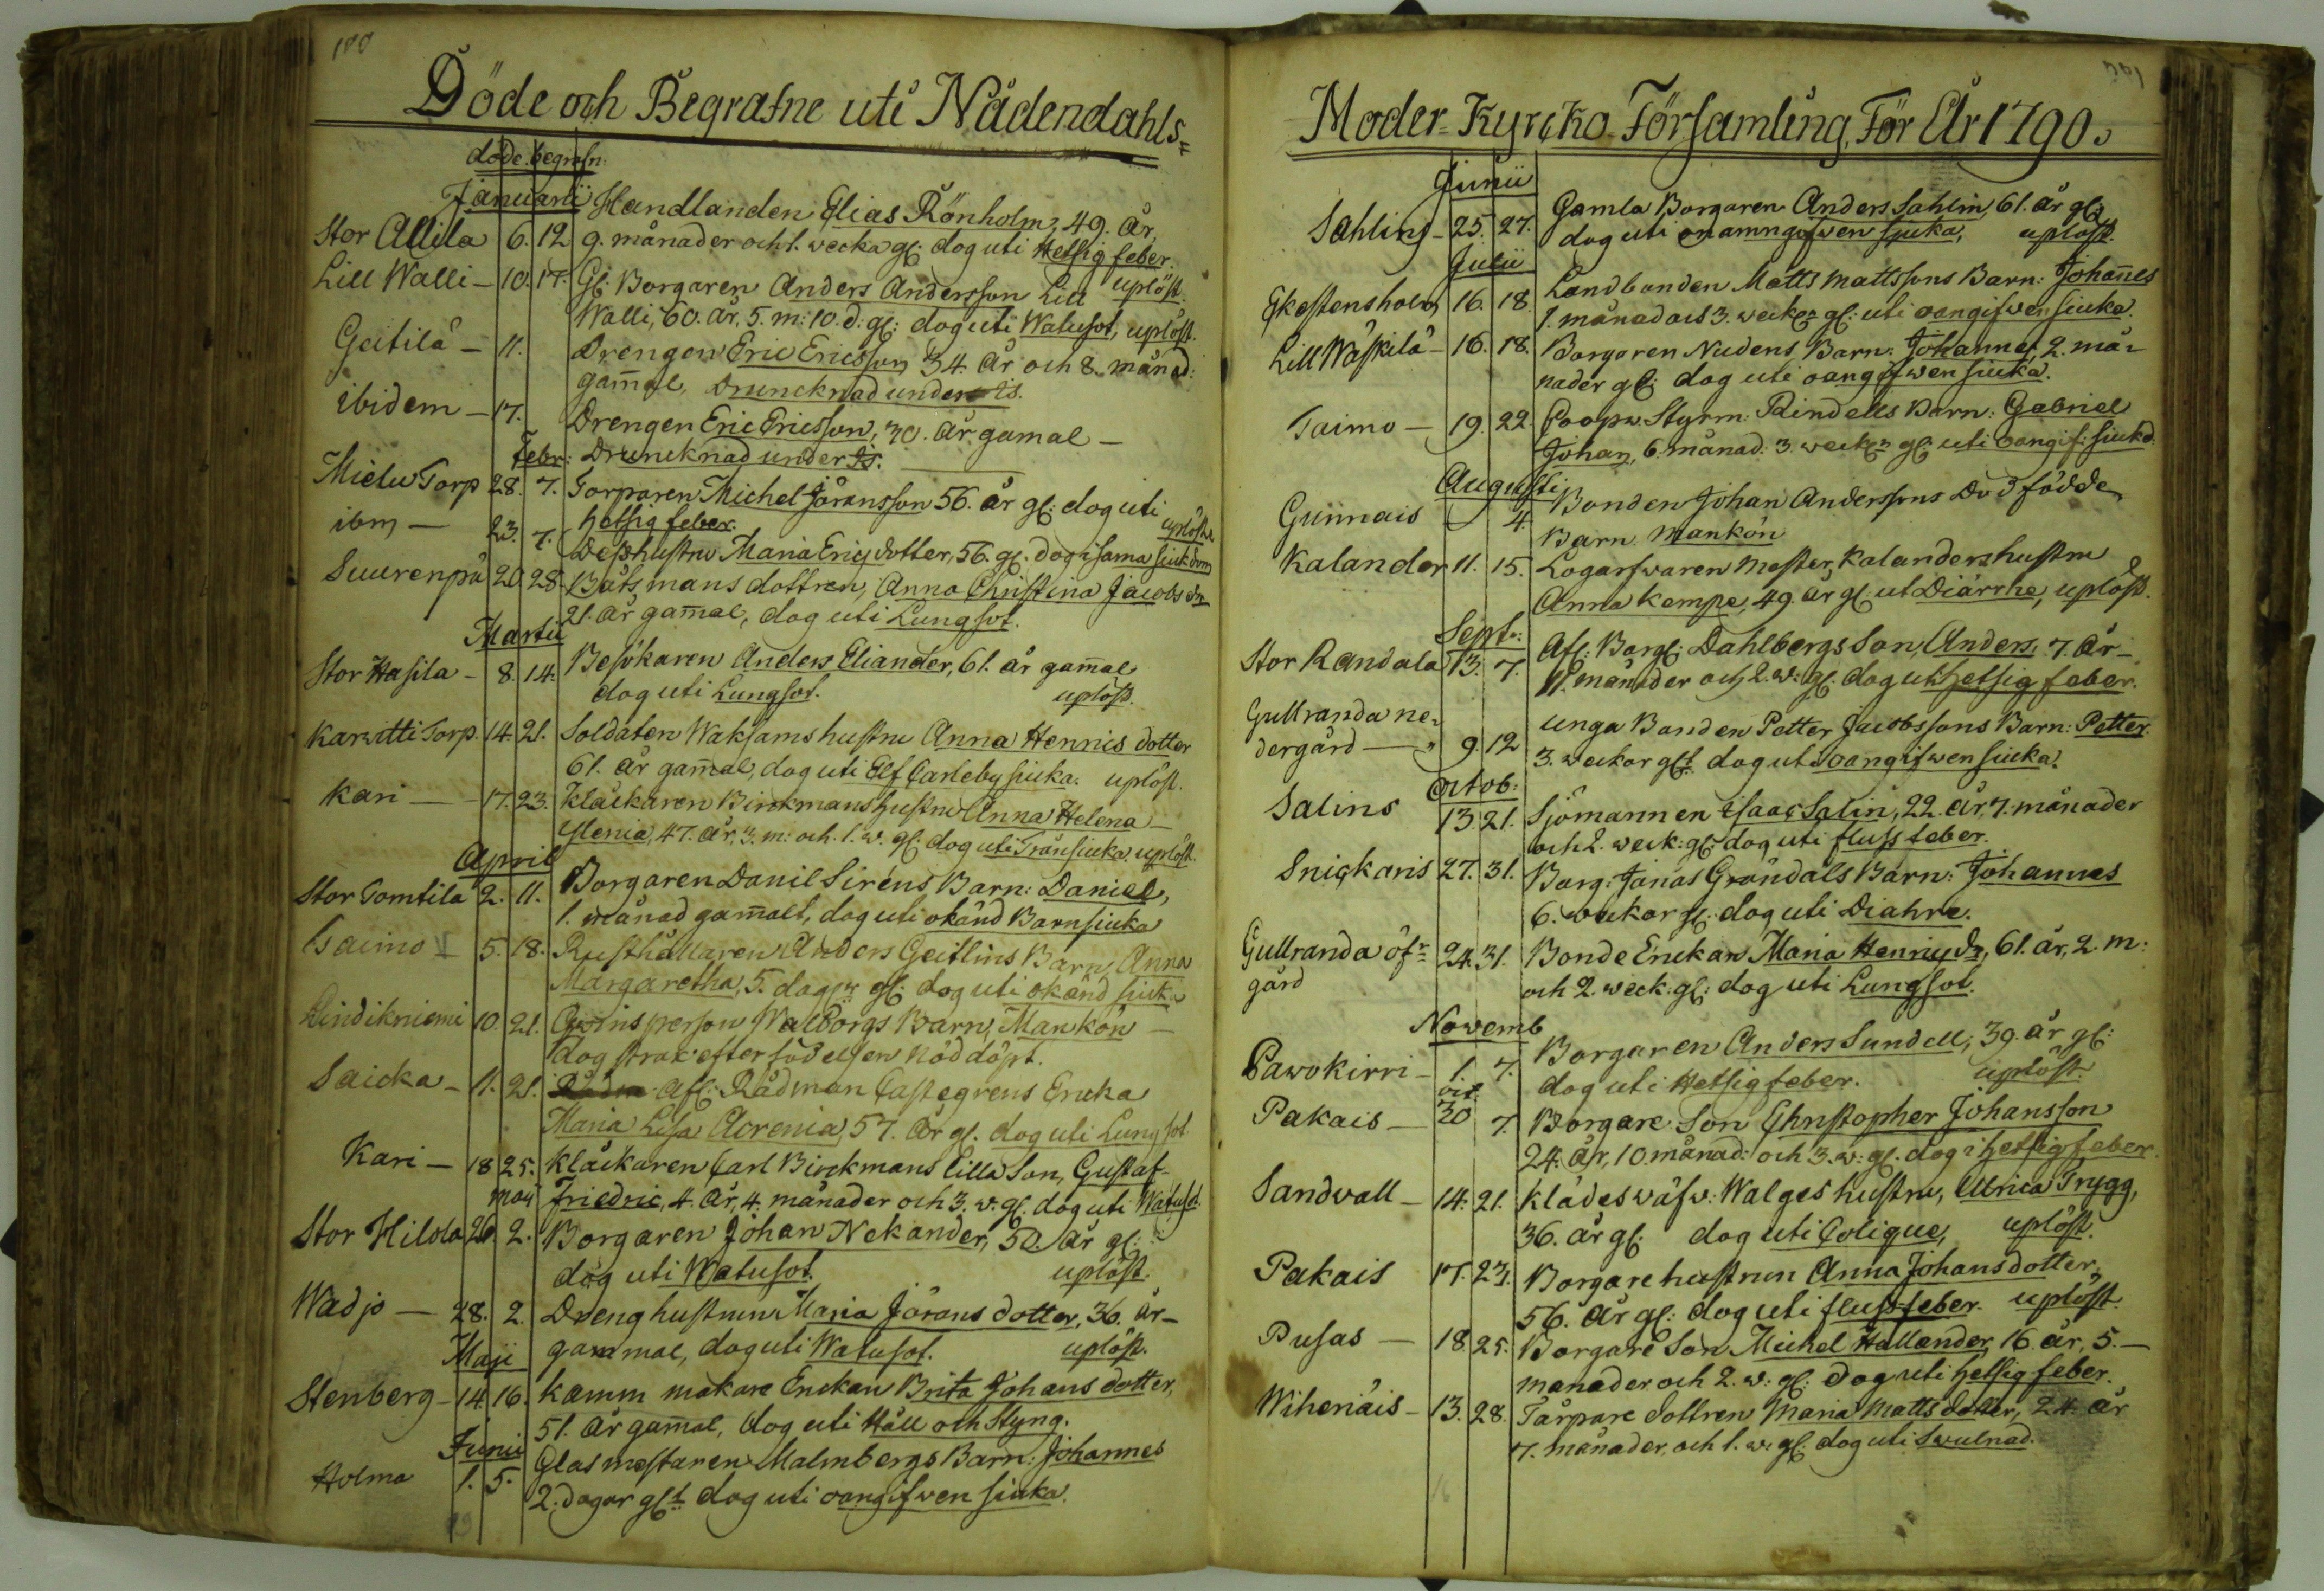 180
Döde och Begrafne uti Nådendahls=
döde. begrafn:
Januarii Handlanden Elias Rönholm, 49. År,
Stor Allila 6. 12 9. månader och 1. wecka gl: dog uti Hetsig feber.
uplöst.
Lill Walli - 10. 17. Gl: Borgaren Anders Andersson Lill
Walli, 60. år, 5. m: 10. d: gl: dog uti Watusot, uplöst.
Geitilä - 11. Drengen Eric Ericsson 34. År och 8. månad:
gam̄al, Druncknad under is.
ibidem - 17. Drengen Eric Ericsson, 30. År gamal -
Febr: Druncknad under is.
Mielu Torp 28. 7. Torparen Michel Jöransson 56. år gl: dog uti
hetsig feber. uplöst
ibm - 23. 7. Dess hustru Maria Ericsdotter, 56. gl. dog i sama siukdom
Suurenpä 20 28. Båtsmans dottren, Anna Christina Jacobs dr
21. år gam̄al, dog uti Lungsot.
Martii
Stor Hasila - 8. 14. Besökaren Anders Eliander, 61. år gam̄al
dog uti Lungsot. uplöst.
Karvitti Torp. 14. 21. Soldaten Waksams hustru Anna Hennis dotter
61. År gam̄al, dog uti Elf Carleby siuka. uplöst.
Kari - 17. 23. Klåckaren Birckmans hustru Anna Helena
Ylenia, 47. år, 3. m: och 1. w. gl: dog uti Trånsiuka. uplöst.
April
Stor Tomtila 2. 11. Borgaren Danil Sirens Barn: Daniel,
1. månad gam̄alt, dog uti okänd Barnsiuka
Isaimo 5. 18. Rusthållaren Anders Geitlins Barn, Anna
Margaretha, 5. dagar gl: dog uti okänd siuka
Lindikniemi 10. 21. Qwinsperson Walborgs Barn, Mankön -
dog strax efter födelsen nöddöpt.
Saicka - 11. 21. Afl: Rådman Castegrens Encka
Maria Lisa Acrenia, 57. År gl. dog uti Lungsot
Kari - 18 25. Klåckaren Carl Birckmans lilla Son, Gustaf
maij Friedric, 4. År, 4. månader och 3. w. gl. dog uti Watusot.
Stor Hilola 26 2. Borgaren Johan Nekander, 50. År gl:
dog uti Watusot. uplöst.
Wadjo - 28. 2. Dreng hustrun Maria Jörans dotter, 36. år -
Maji gammal, dog uti Watusot. uplöst.
Stenberg - 14 16. Kamm makare Enckan Brita Johans dotter,
51. år gam̄al, dog uti Håll och Styng.
Junii
Holma 1. 5. Glasmestaren Malmbergs Barn: Johannes
2. dagar glt dog uti oangifwen siuka.
Moder-Kyrcko-Församling, För År 1790.
Junii
Sahling - 25. 27. Gamla Borgaren Anders Sahlin, 61. år gl:
dog uti onamngifwen sjuka, uplöst.
Julii
Ekestensholm 16. 18. Landbonden Matts Mattssons Barn: Johan̄es
1. månad och 3. weckor gl: uti oangifwen siuka.
Lill Wäskilä - 16. 18. Borgaren Nudens Barn: Johannes, 2. må-
nader gl: dog uti oangifwen siuka.
Taimo - 19. 22. Coopw. Styrm: Rindells Barn: Gabriel
Johan, 6. månad: 3. weckor gl: uti oangif: siukd.
Augusti
Gunnais 4. Bonden Johan Anderssons Död födde
Barn. Mankön
Kalander 11. 15. Logarfwaren Mester Kalanders hustru
Anna Kempe, 49. år gl: ut Diärrhe, uplöst.
Sept:
Stor Randala 13. 7. Afl: Borgl: Dahlbergs Son, Anders, 7. År -
11. månader och 2. w. gl. dog uti hetsig feber.
Gullranda ne-
dergård - 9. 12 unga Bonden Petter Jacobssons Barn: Petter
3. weckor glt dog uti oangifwen siuka.
Octob:
Salins 13. 21. Sjömannen Isaac Salin, 22. år, 7. månader
och 2. weck: gl: dog uti fluss feber.
Snickaris 27. 31. Borg: Jonas Gröndals Barn: Johannes
6. weckor gl: dog uti Diahre.
Gullranda öfr
gård 24. 31. Bonde Enckan Maria Henrics dr, 61. år, 2. m:
och 2. weck: gl: dog uti Lungsot.
Novemb
Pawokirri - 1. 7. Borgaren Anders Sundell, 39. år gl:
dog uti Hetsig feber. uplöst.
oct.
Pakais - 30 7. Borgare Son Christopher Johansson
24. År, 10. månad: och 3. w: gl. dog i hetsig feber.
Sandvall - 14. 21. Klädeswäfw: Walges hustru, Ulrica Trygg,
36. år gl: dog uti Colique, uplöst.
Pakais 17. 23. Borgare hustrun Anna Johans dotter,
56. År gl: dog uti fluss feber. uplöst.
Pusas - 18. 25. Borgare Son Michel Hallander, 16. år, 5. -
manader och 2. w: gl: dog uti hetsig feber.
Wihenäis - 13. 28. Tårpare dottren Maria Matts dotter, 24. år
7. månader, och 1. w. gl: dog uti Swulnad.